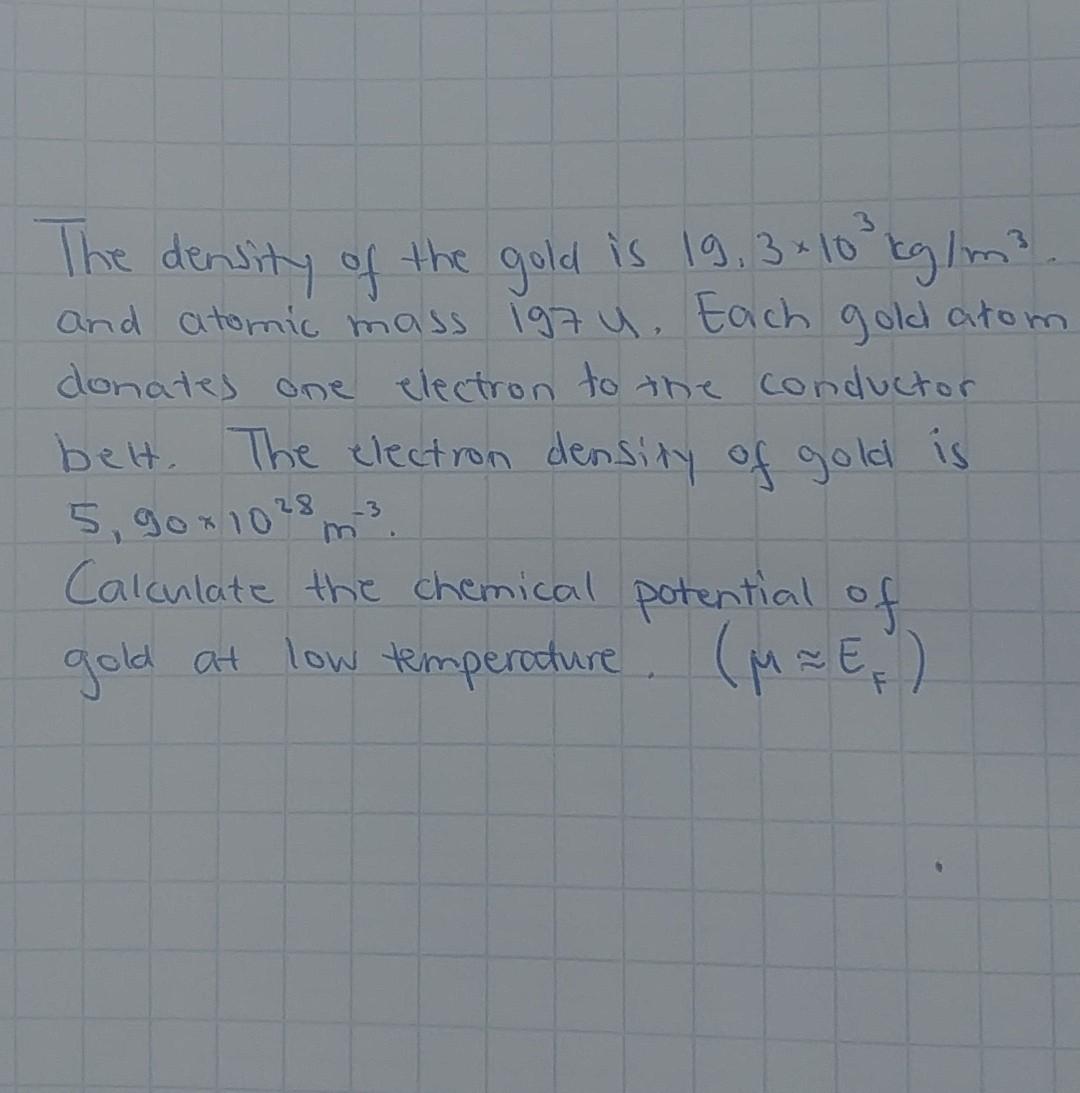 The density of the gold is 19.3×10³ kg/m³.
and atomic mass 197 u. Each gold atom
donates one electron to the conductor
belt. The electron density of gold is
5,90×10²⁸ m⁻³.
Calculate the chemical potential of
gold at low temperature. (μ ≈ E_F)